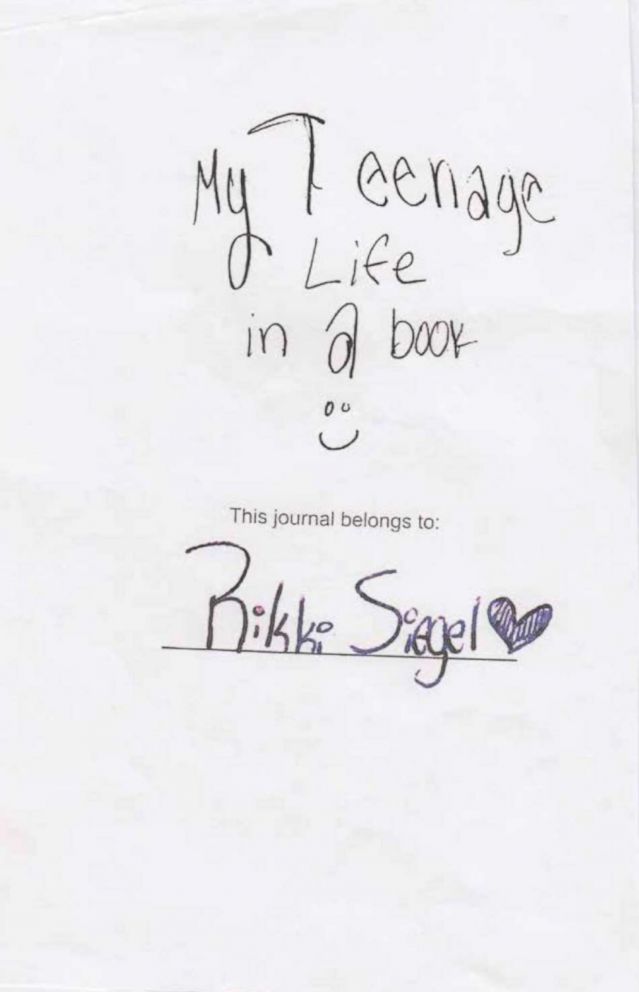 My Teenage
Life
in a book
This journal belongs to:
Rikki Siegel